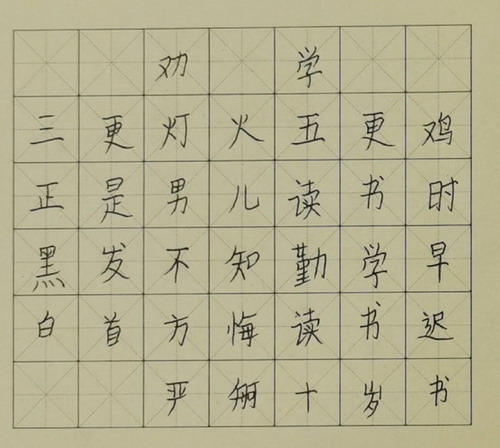 劝学
三更灯火五更鸡
正是男儿读书时
黑发不知勤学早
白首方悔读书迟
严十岁书